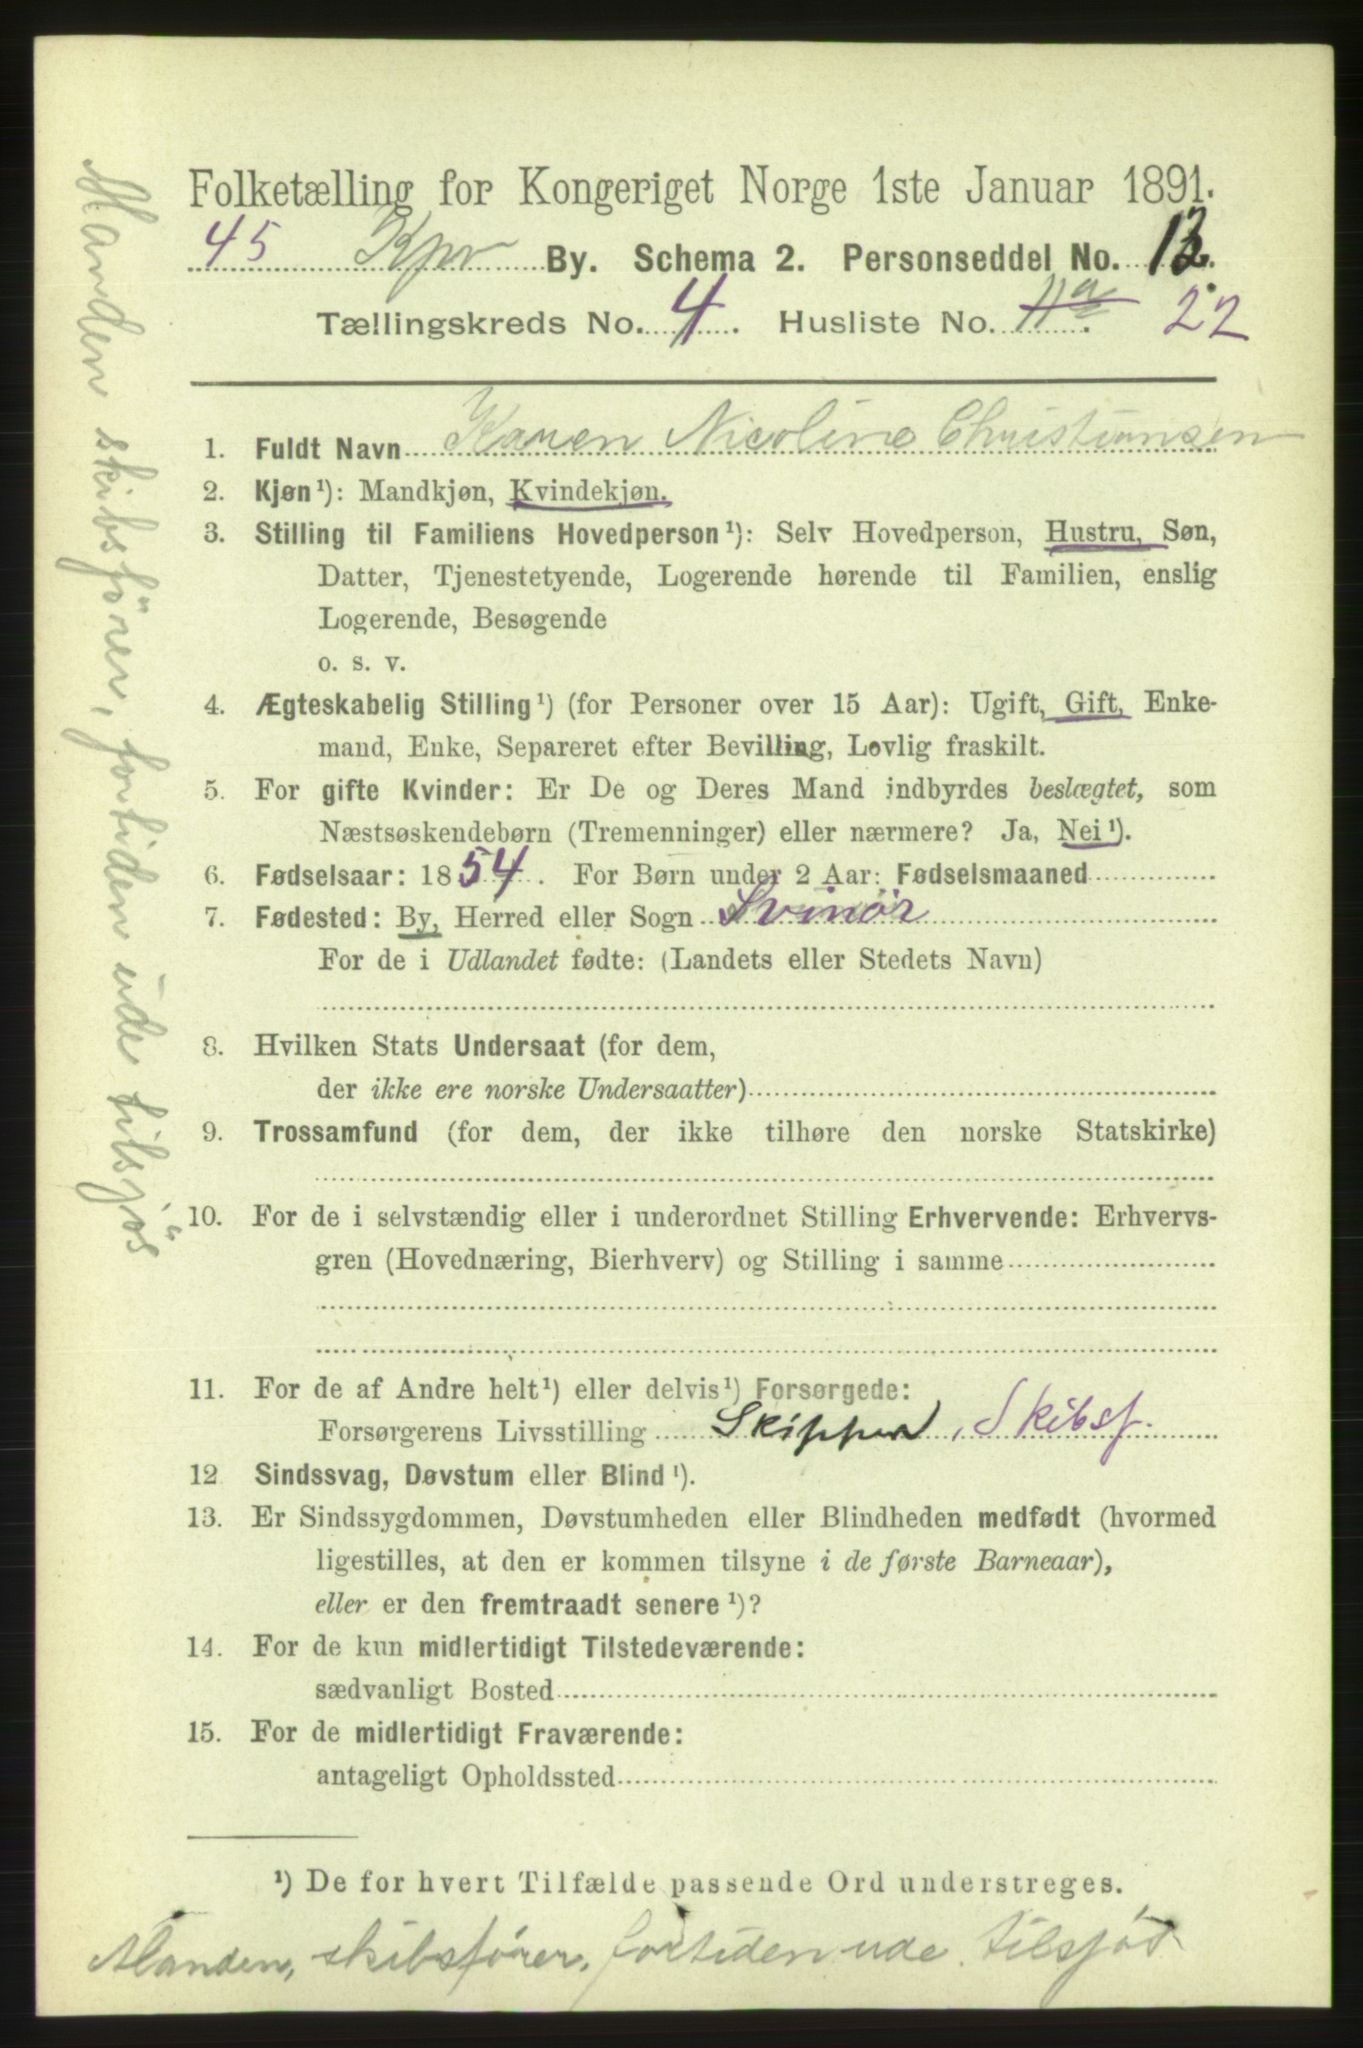 Folketælling for Kongeriget Norge 1ste Januar 1891.
45 By. Schema 2. Personseddel No.
Tællingskreds No. 4. Husliste No. 11a. 22
1. Fuldt Navn Karen Nicoline Christiansen
2. Kjøn¹): Mandkjøn, Kvindekjøn.
3. Stilling til Familiens Hovedperson¹): Selv Hovedperson, Hustru, Søn,
Datter, Tjenestetyende, Logerende hørende til Familien, enslig
Logerende, Besøgende
o. s. v.
4. Ægteskabelig Stilling¹) (for Personer over 15 Aar): Ugift, Gift, Enke-
mand, Enke, Separeret efter Bevilling, Lovlig fraskilt.
5. For gifte Kvinder: Er De og Deres Mand indbyrdes beslægtet, som
Næstsøskendebørn (Tremenninger) eller nærmere? Ja, Nei¹).
6. Fødselsaar: 1854. For Børn under 2 Aar: Fødselsmaaned
7. Fødested: By, Herred eller Sogn Svinör
For de i Udlandet fødte: (Landets eller Stedets Navn)
8. Hvilken Stats Undersaat (for dem,
der ikke ere norske Undersaatter)
9. Trossamfund (for dem, der ikke tilhøre den norske Statskirke)
10. For de i selvstændig eller i underordnet Stilling Erhvervende: Erhvervs-
gren (Hovednæring, Bierhverv) og Stilling i samme
11. For de af Andre helt¹) eller delvis¹) Forsørgede:
Forsørgerens Livsstilling Skipper, Skibsf.
12 Sindssvag, Døvstum eller Blind¹).
13. Er Sindssygdommen, Døvstumheden eller Blindheden medfødt (hvormed
ligestilles, at den er kommen tilsyne i de første Barneaar),
eller er den fremtraadt senere¹)?
14. For de kun midlertidigt Tilstedeværende:
sædvanligt Bosted
15. For de midlertidigt Fraværende:
antageligt Opholdssted
¹) De for hvert Tilfælde passende Ord understreges.
Manden, skibsfører, fortiden ude tilsjös
Manden skibsförer, fortiden ude tilsjös